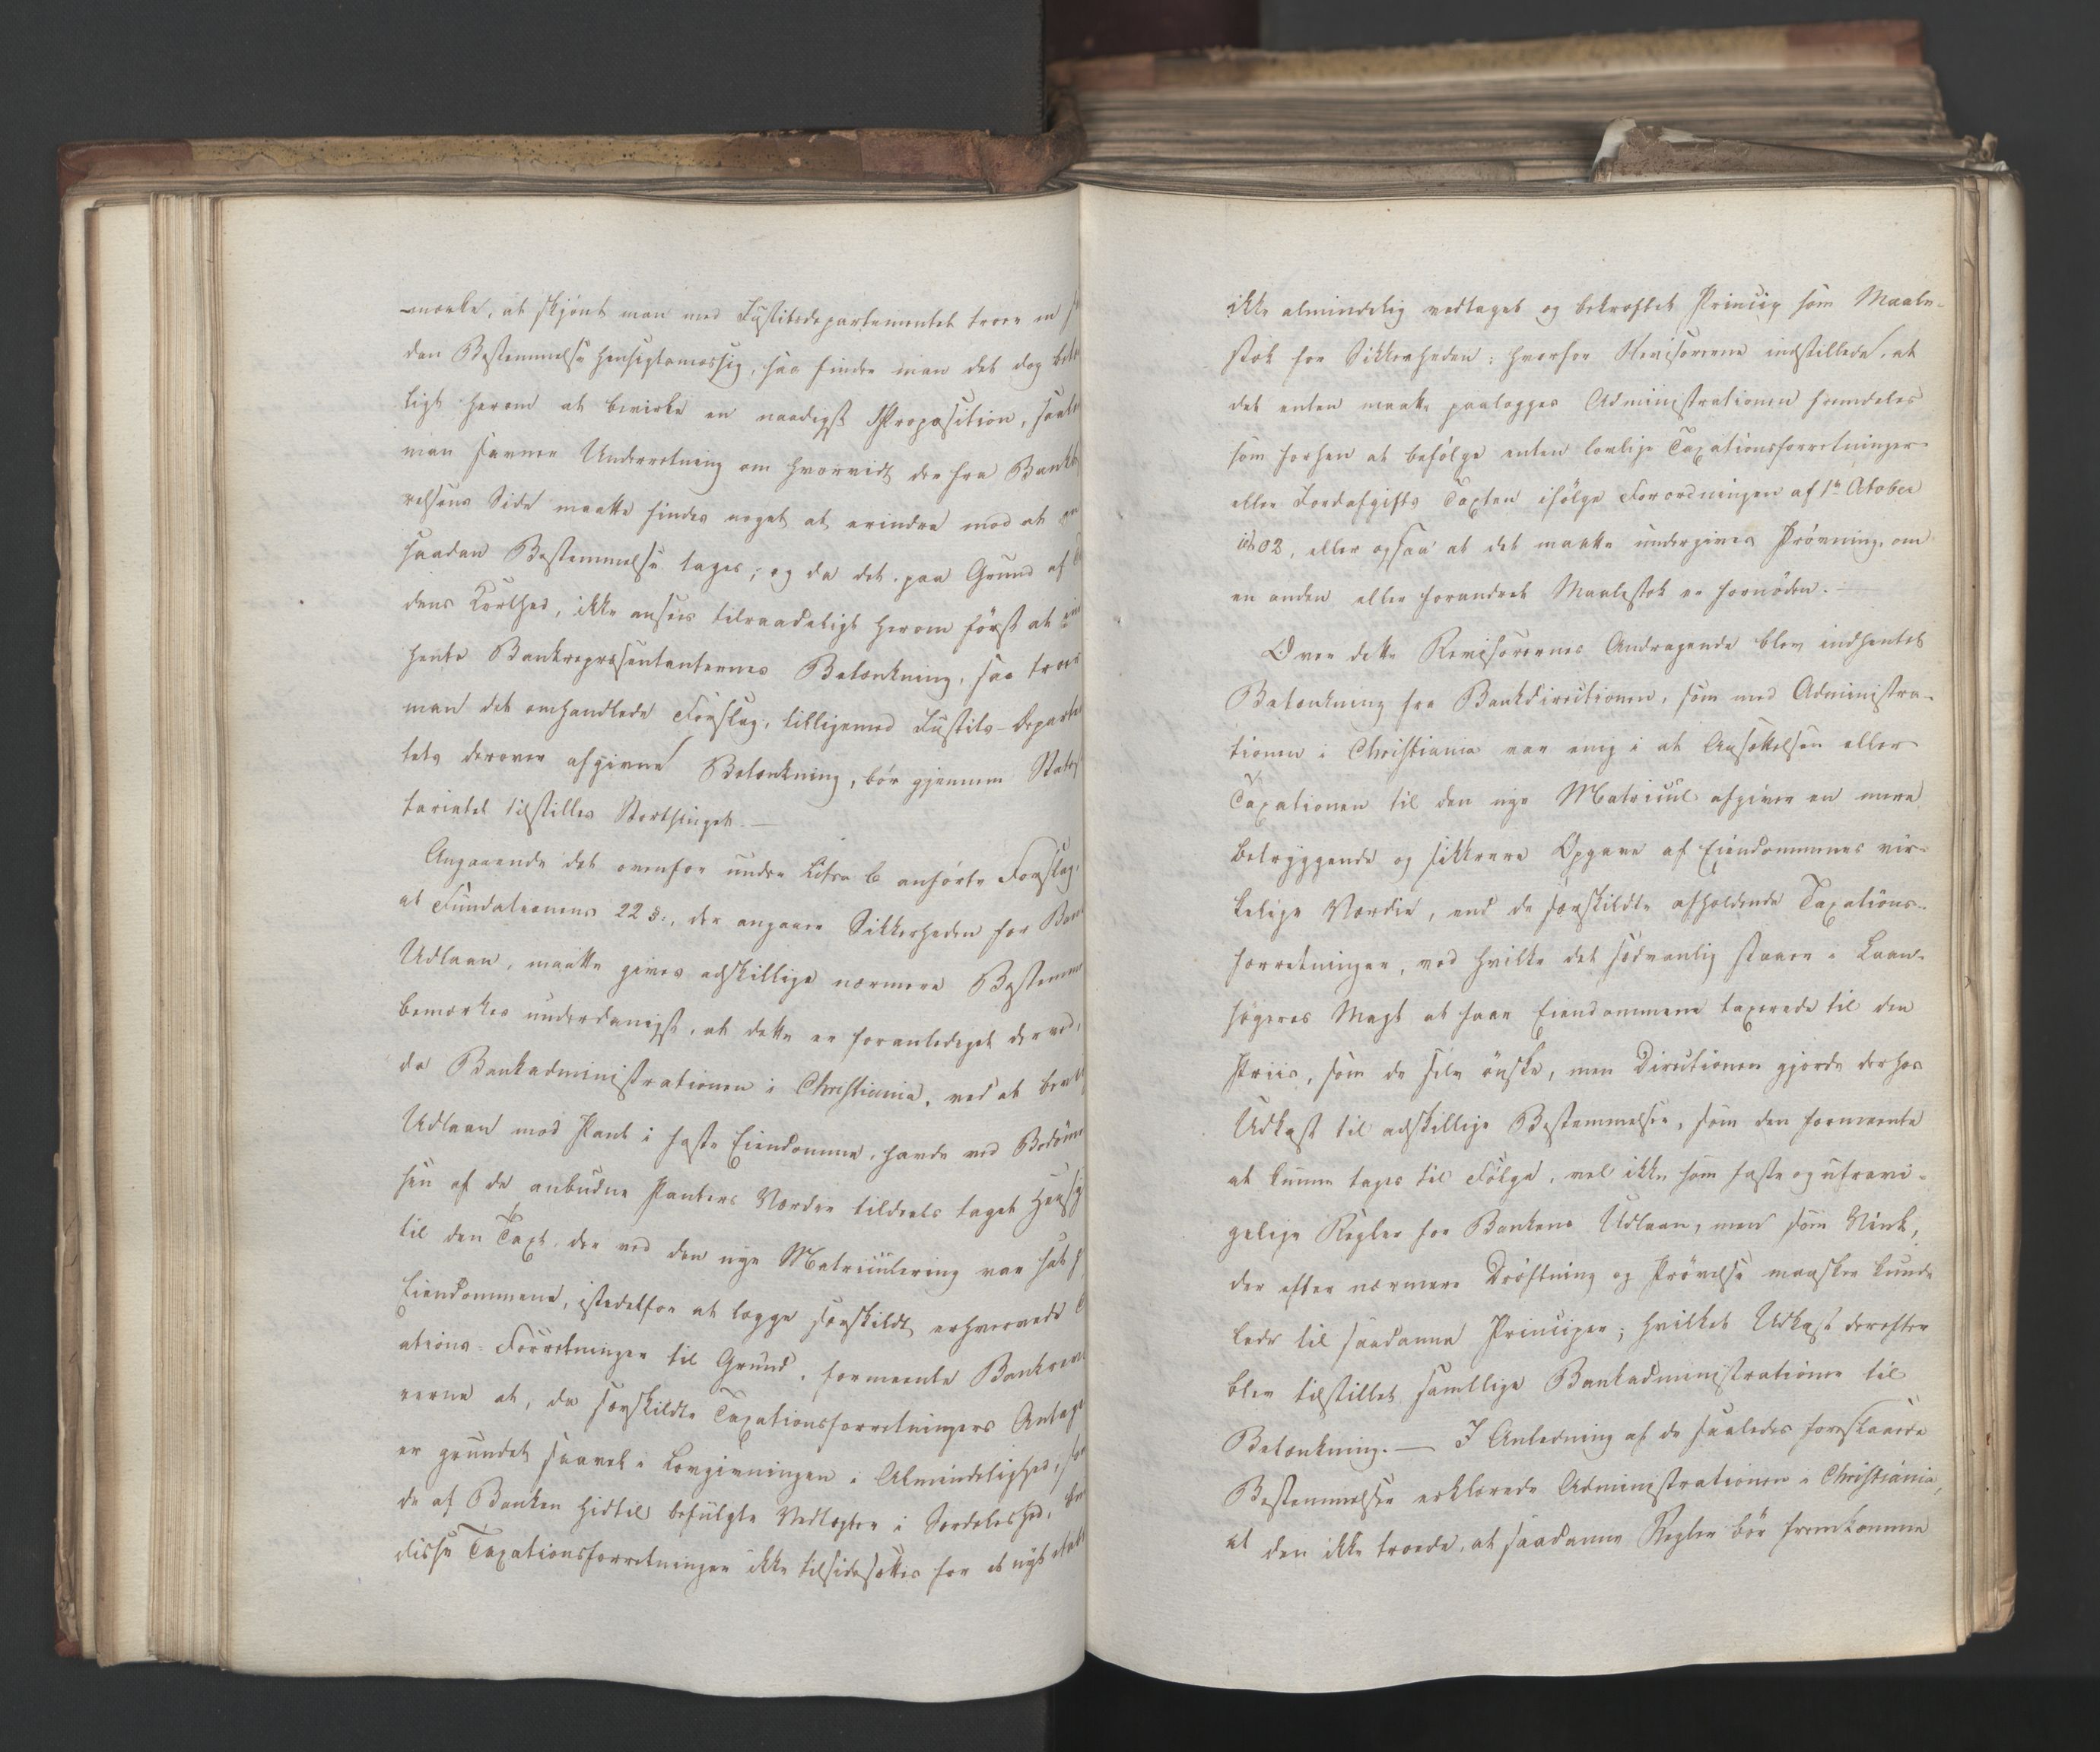 -mærke, at skjönt man med Justitsdepartementet troer en
den Bestemmelse hensigtsmæssig, saa finder man det dog
ligt herom at bevirke en naadigst Proposition,
man savner Underretning om hvorvidt der fra
relsens Side maatte findes noget at erindre mod at en
saadan Bestemmelse tages; og da det, paa Grund af
dens Korthed, ikke ansees tilraadeligt herom först at
hente Bankrepræsentanternes Betænkning, saa troer
man det omhandlede Forslag, tilligemed Justits-
tets derover afgivne Betænkning, bör gjennem
tariatet tilstilles Storthinget. —
Angaaende det ovenfor under Litra b anförte Forslag,
at Fundationens 22 §:, der angaaer Sikkerheden for
Udlaan, maatte gives adskillige nærmere
bemærkes underdanigst, at dette er foranlediget derved,
da Bankadministrationen i Christiania, ved at
Udlaan mod Pant i faste Eiendomme, havde ved
sen af de anbudne Panters Værdie tildeels taget
til den Taxt, der ved den nye Matriculering var sat
Eiendommene, istedetfor at lægge særskildt erhvervede
ations-Forretninger til Grund, formeente
rerne at, da særskildte Taxationsforretningers
er grundet saavel i Lovgivningen i Almindelighed,
de af Banken hidtil befulgte Vedtægter i Særdeleshed,
disse Taxationsforretninger ikke tilsidesættes for et nyt
ikke almindelig vedtaget og bekræftet Princip som Maale-
stok for Sikkerheden; hvorfor Revisorerne indstillede, at
det enten maatte paalægges Administrationen fremdeles
som forhen at befölge enten lovlige Taxationsforretninger
eller Jordafgifts Taxten ifölge Forordningen af 1te October
1802, eller ogsaa at det maatte undergives Prövning, om
en anden eller forandret Maalestok er fornöden. —
Over dette Revisorernes Andragende blev indhentet
Betænkning fra Bankdirectionen, som med Administra-
tionen i Christiania var enig i at Ansættelsen eller
Taxationen til den nye Matricul afgiver en mere
betryggende og sikkrere Opgave af Eiendommenes vir-
kelige Værdie, end de særskildte afholdende Taxations-
forretninger, ved hvilke det sædvanlig staaer i Laan-
sögeres Magt at faae Eiendommene taxerede til den
Priis, som de selv önske, men Directionen gjorde derhos
Udkast til adskillige Bestemmelser, som den formeente
at kunne tages til Fölge, vel ikke som faste og ufravi-
gelige Regler for Bankens Udlaan, men som Vink,
der efter nærmere Dröftning og Prövelse maaskee kunde
lede til saadanne Principer; hvilket Udkast derefter
blev tilstillet samtlige Bankadministrationer til
Betænkning. — I Anledning af de saaledes foreslaaede
Bestemmelser erklærede Administrationen i Christiania,
at den ikke troede, at saadanne Regler bör fremkomme